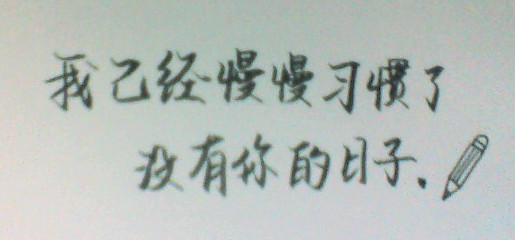 我己经慢慢习惯了
没有你的日子.